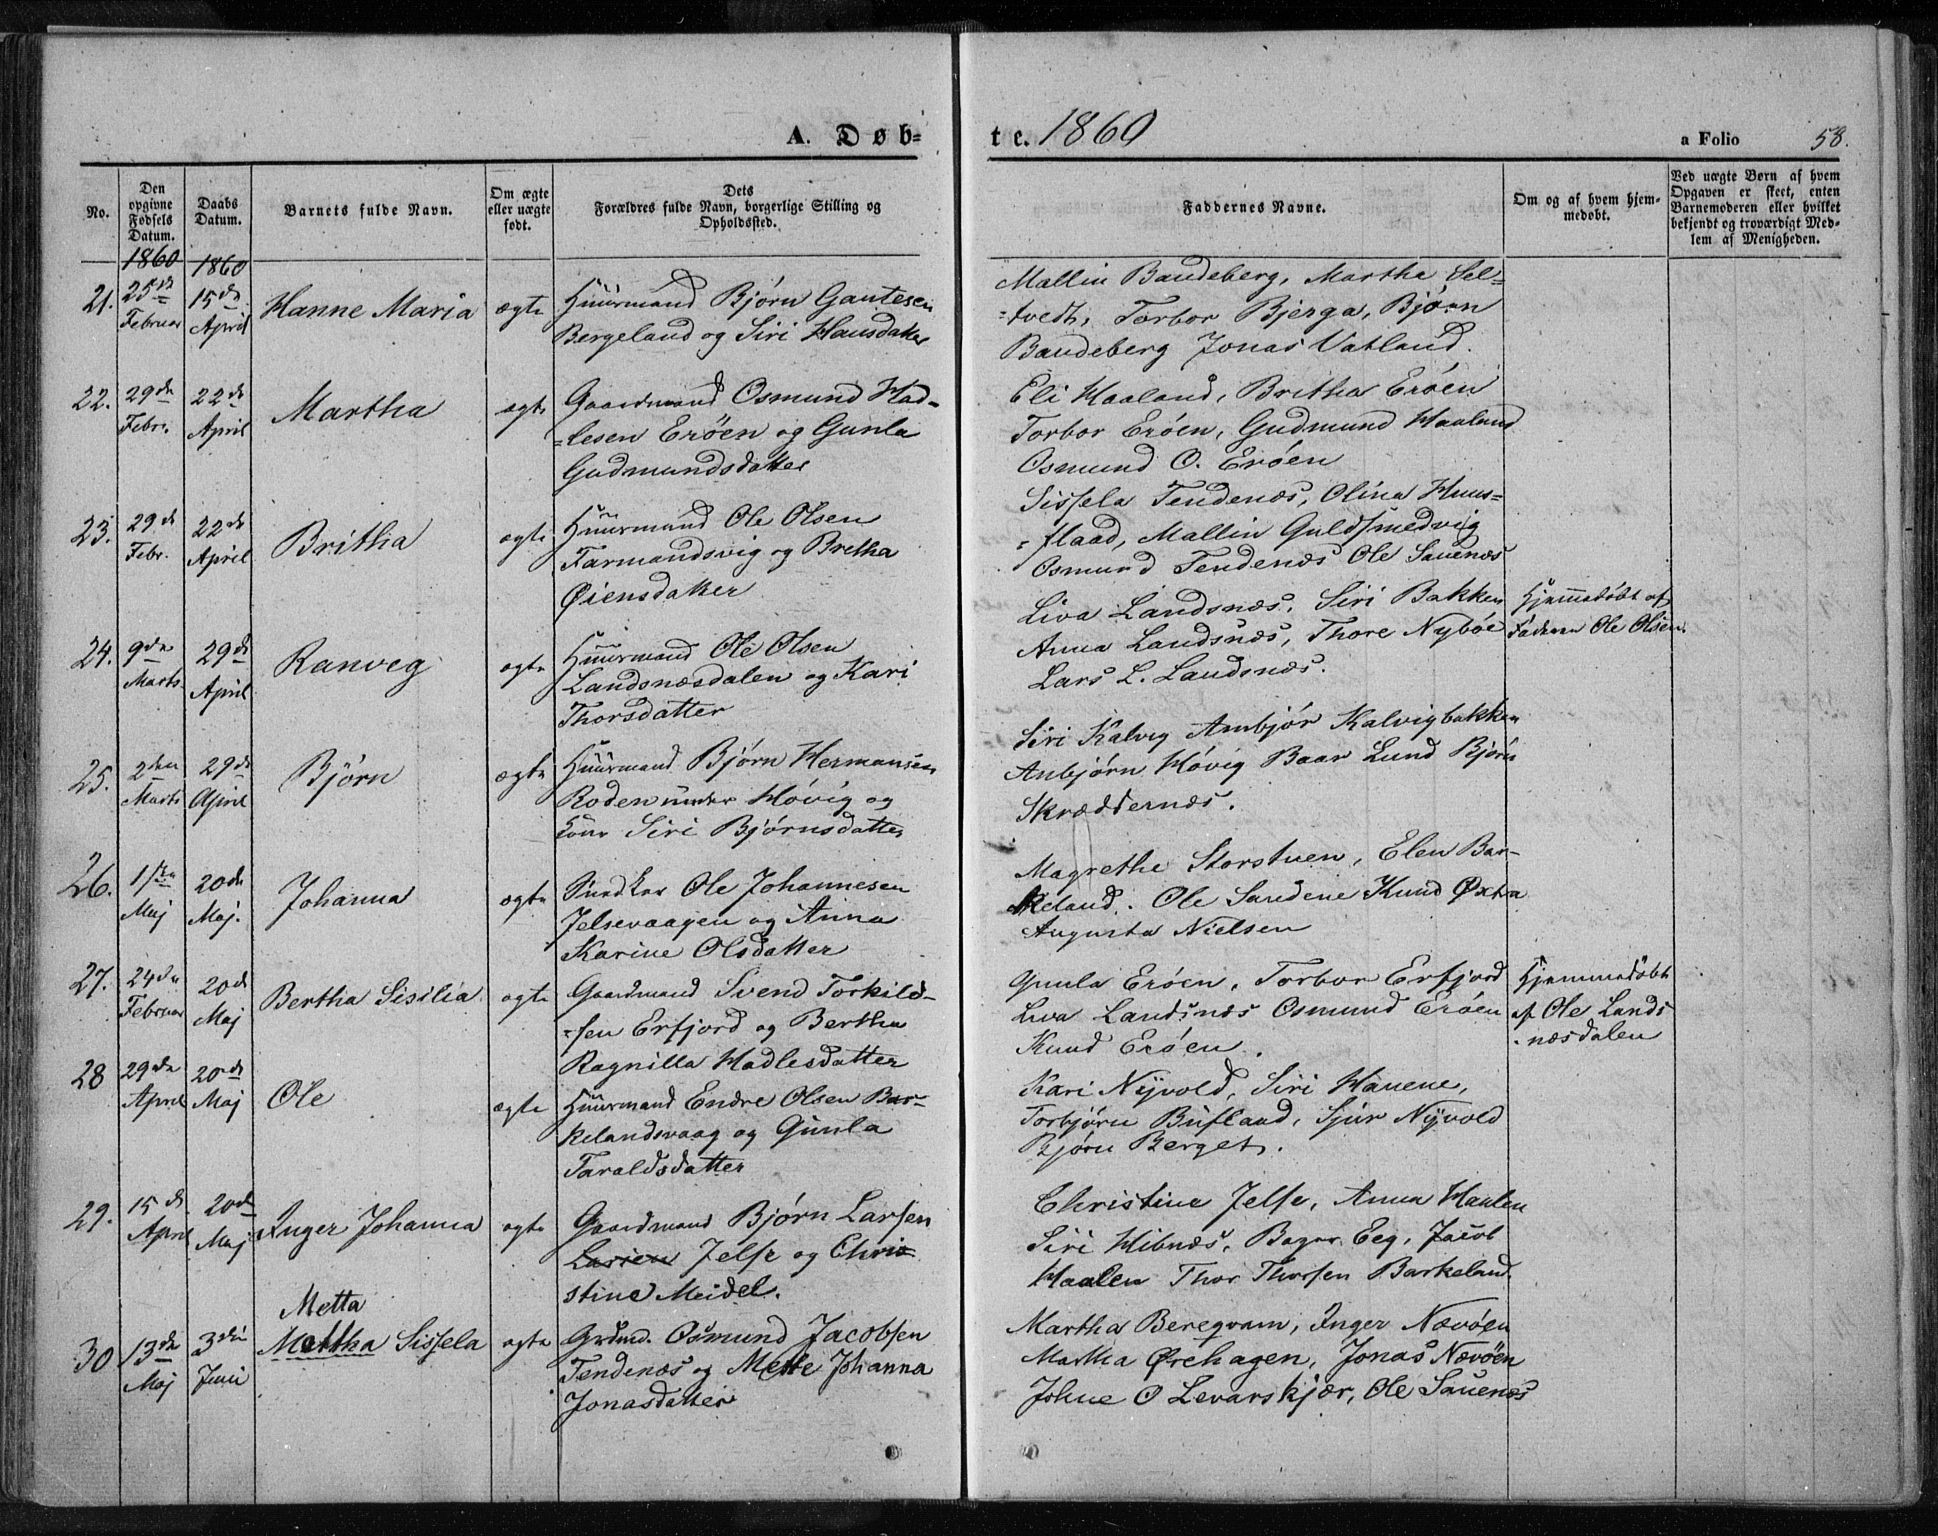 A. Døb=
te. 1860
a Folio 58.
No.
Den opgivne Fødsels Datum.
Daabs Datum.
Barnets fulde Navn.
Om ægte eller uægte født.
Dets Forældres fulde Navn, borgerlige Stilling og Opholdssted.
Faddernes Navne.
Om og af hvem hjem-
medøbt.
Ved uægte Børn af hvem
Opgaven er skeet, enten
Barnemoderen eller hvilket
bekjendt og troværdigt Med-
lem af Menigheden.
1860 1860
21. 25de Februar 15de April Hanne Maria ægte
Huusmand Bjørn Gautesen
Bergeland og Siri Hansdatter
Mallin Baudeberg, Martha Sel-
=tvedt, Torbor Bjerga, Bjørn
Baudeberg Jonas Vatland.
22. 29de Febr. 22de April Martha ægte
Gaardmand Osmund Had-
=lesen Erøen og Gunla
Gudmundsdatter
Eli Haaland, Britha Erøen
Torbor Erøen, Gudmund Haaland
Osmund O. Erøen
23. 29de Febr. 22de April Britha ægte
Huusmand Ole Olsen
Farmandsvig og Bretha
Øiensdatter
Sissela Tendenæs, Olina Huus-
=flaad, Mallin Guldsmedvig
Osmund Tendenæs Ole Sauenæs
24. 9de Marts 29de April Ranveg ægte
Huusmand Ole Olsen
Landsnæsdalen og Kari
Thorsdatter
Liva Landsnæs, Siri Bakken
Anna Landsnæs, Thore Nybøe
Lars L. Landsnæs.
Hjemmedøbt af
Faderen Ole Olsen.
25. 2den Marts 29de April Bjørn ægte
Huusmand Bjørn Hermansen
Roden under Høvig og
Kone Siri Bjørnsdatter
Siri Kalvig Ambjør Kalvigbakken
Anbjørn Høvig Baar Lund Bjørn
Skræddernæs.
26. 1ste Maj 20de Maj. Johanna ægte
Ole Johannesen
Jelsevaagen og Anna
Karine Olsdatter
Magrethe Storstuen, Elen Bar-
keland. Ole Sandene Knud Øxtra
Augusta Nielsen
27. 24de Februar 20de Maj Bertha Sisilia ægte
Gaardmand Svend Torkild-
=sen Erfjord og Bertha
Ragnilla Hadlesdatter
Gunla Erøen, Torbor Erfjord
Liva Landsnæs Osmund Erøen
Knud Erøen.
Hjemmedøbt
af Ole Lands
-næsdalen
28 29de April 20de Maj Ole ægte
Huusmand Endre Olsen Bar-
kelandsvaag og Gunla
Taraldsdatter
Kari Nyvold, Siri Hauene,
Torbjørn Bufland, Sjur Nyvold
Bjørn Berget.
29. 15de April 20de Maj Inger Johanna ægte
Gaardmand Bjørn Larsen
Larsen Jelse og Chris
stine Meidel.
Christine Jelse, Anna Haalen
Siri Hibnæs, Bagar Eeg, Jacob
Haalen Thor Thorsen Barkeland.
30 13de Maj 3die Juni
Metta
Mettha Sissela ægte
Grdmd. Osmund Jacobsen
Tendenæs og Mette Johanna
Jonasdatter
Martha Bereqvam, Inger Nævøen
Martha Ørehagen, Jonas Nævøen
Johne O Levarskjær, Ole Sauenæs